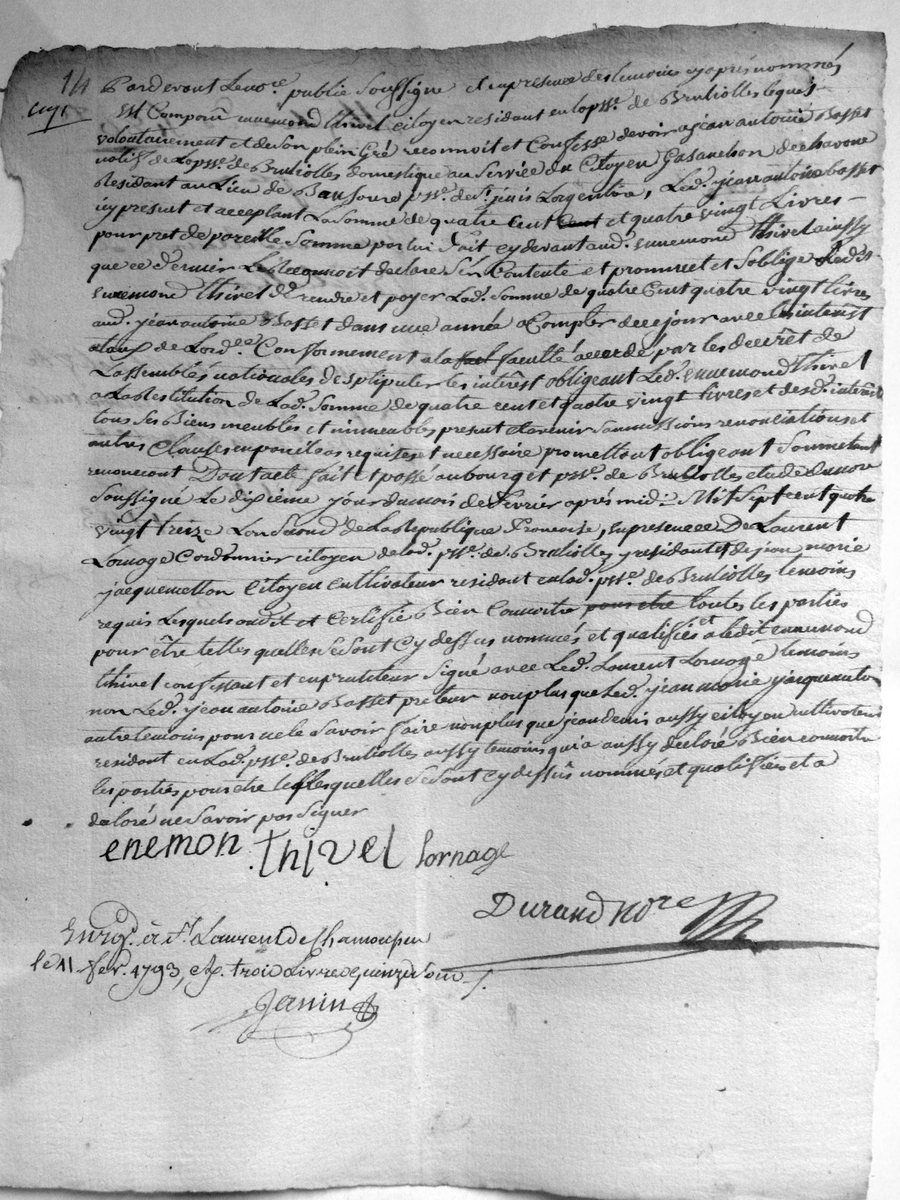 14
Pardevant Le nore. publie Soussigné et en presence des temoins cy apres nommés
Est Comparu ennemond thivel citoyen residant en la psse. de Bruliolles lequel
volontairement et de son plein Gré reconnoit et Confesse devoir a jean antoine Basset
natif de La psse. de Brulliolles domestique au Service du Citoyen Gasanchon de chavone
Residant au Lieu de psse. de st. jenis Largentire, Led. jean antoine basset
icy present et acceptant La Somme de quatre cent et quatre vingt Livres
pour pret de pareille Somme par lui fait cy devant aud. ennemond thivel ainssy
que ce dernier Le Reconnoit declare S'en Contente et prommet et s'oblige Led. st
ennemond thivel de rendre et payer Lad. Somme de quatre Cent quatre vingt livres
aud. jean antoine Basset dans une année a Compter de ce jour avec interest
a taux de Lord.ce Conformement a la faculté accordé par les decrêt de
L'assemblés nationales de stipuler les interêst obligeant Led. ennemond thivel
a La Restitution de Lad. Somme de quatre cent et quatre vingt livres et desd. interêst
tous ses Biens meubles et immeubles present et avenir soumissions renonciations et
autres Clauses en pareil cas requises et necessaire promettant obligeant Soumettant
renoncant Dont acte fait et passé au bourg et psse. de Brulliolles etude du nore
Soussigné Le dixième jour du mois de fevrier après midi Mil Sept cent quatre
vingt treize L'an Second de La Republique francoise, en presence De Laurent
Lornage Cordonnier citoyen de lad. psse. de Brulliolles y residant et de jean marie
jacquemetton Citoyen Cultivateur residant en lad. psse. de Brulliolles temoins
requis Lesquels ont dit et Certifié Bien Connoitre pour etre toutes les parties
pour être telles quelles se sont Cy dessus nommés et qualifiés et a ledit ennemond
thivel confessant et emprunteur Signé avec Led. Laurent Lornage temoins
non Led. jean antoine Basset preteur non plus que Led. jean marie jacquemeton
autre temoins pour ne le Savoir faire non plus que jean denis aussy citoyen cultivateur
residant en Lad. psse. de Brulliolles aussy temoins qui a aussy declaré Bien connoitre
les parties pour etre telles quelles Se Sont Cy dessus nommés et qualifiés et a
declaré ne Savoir pas Signer
enemon thivel lornage
Durand Nore
Enrg. à st. Laurent de Chamousset
le 11. fev. 1793, trois livres quinze sous
Janin